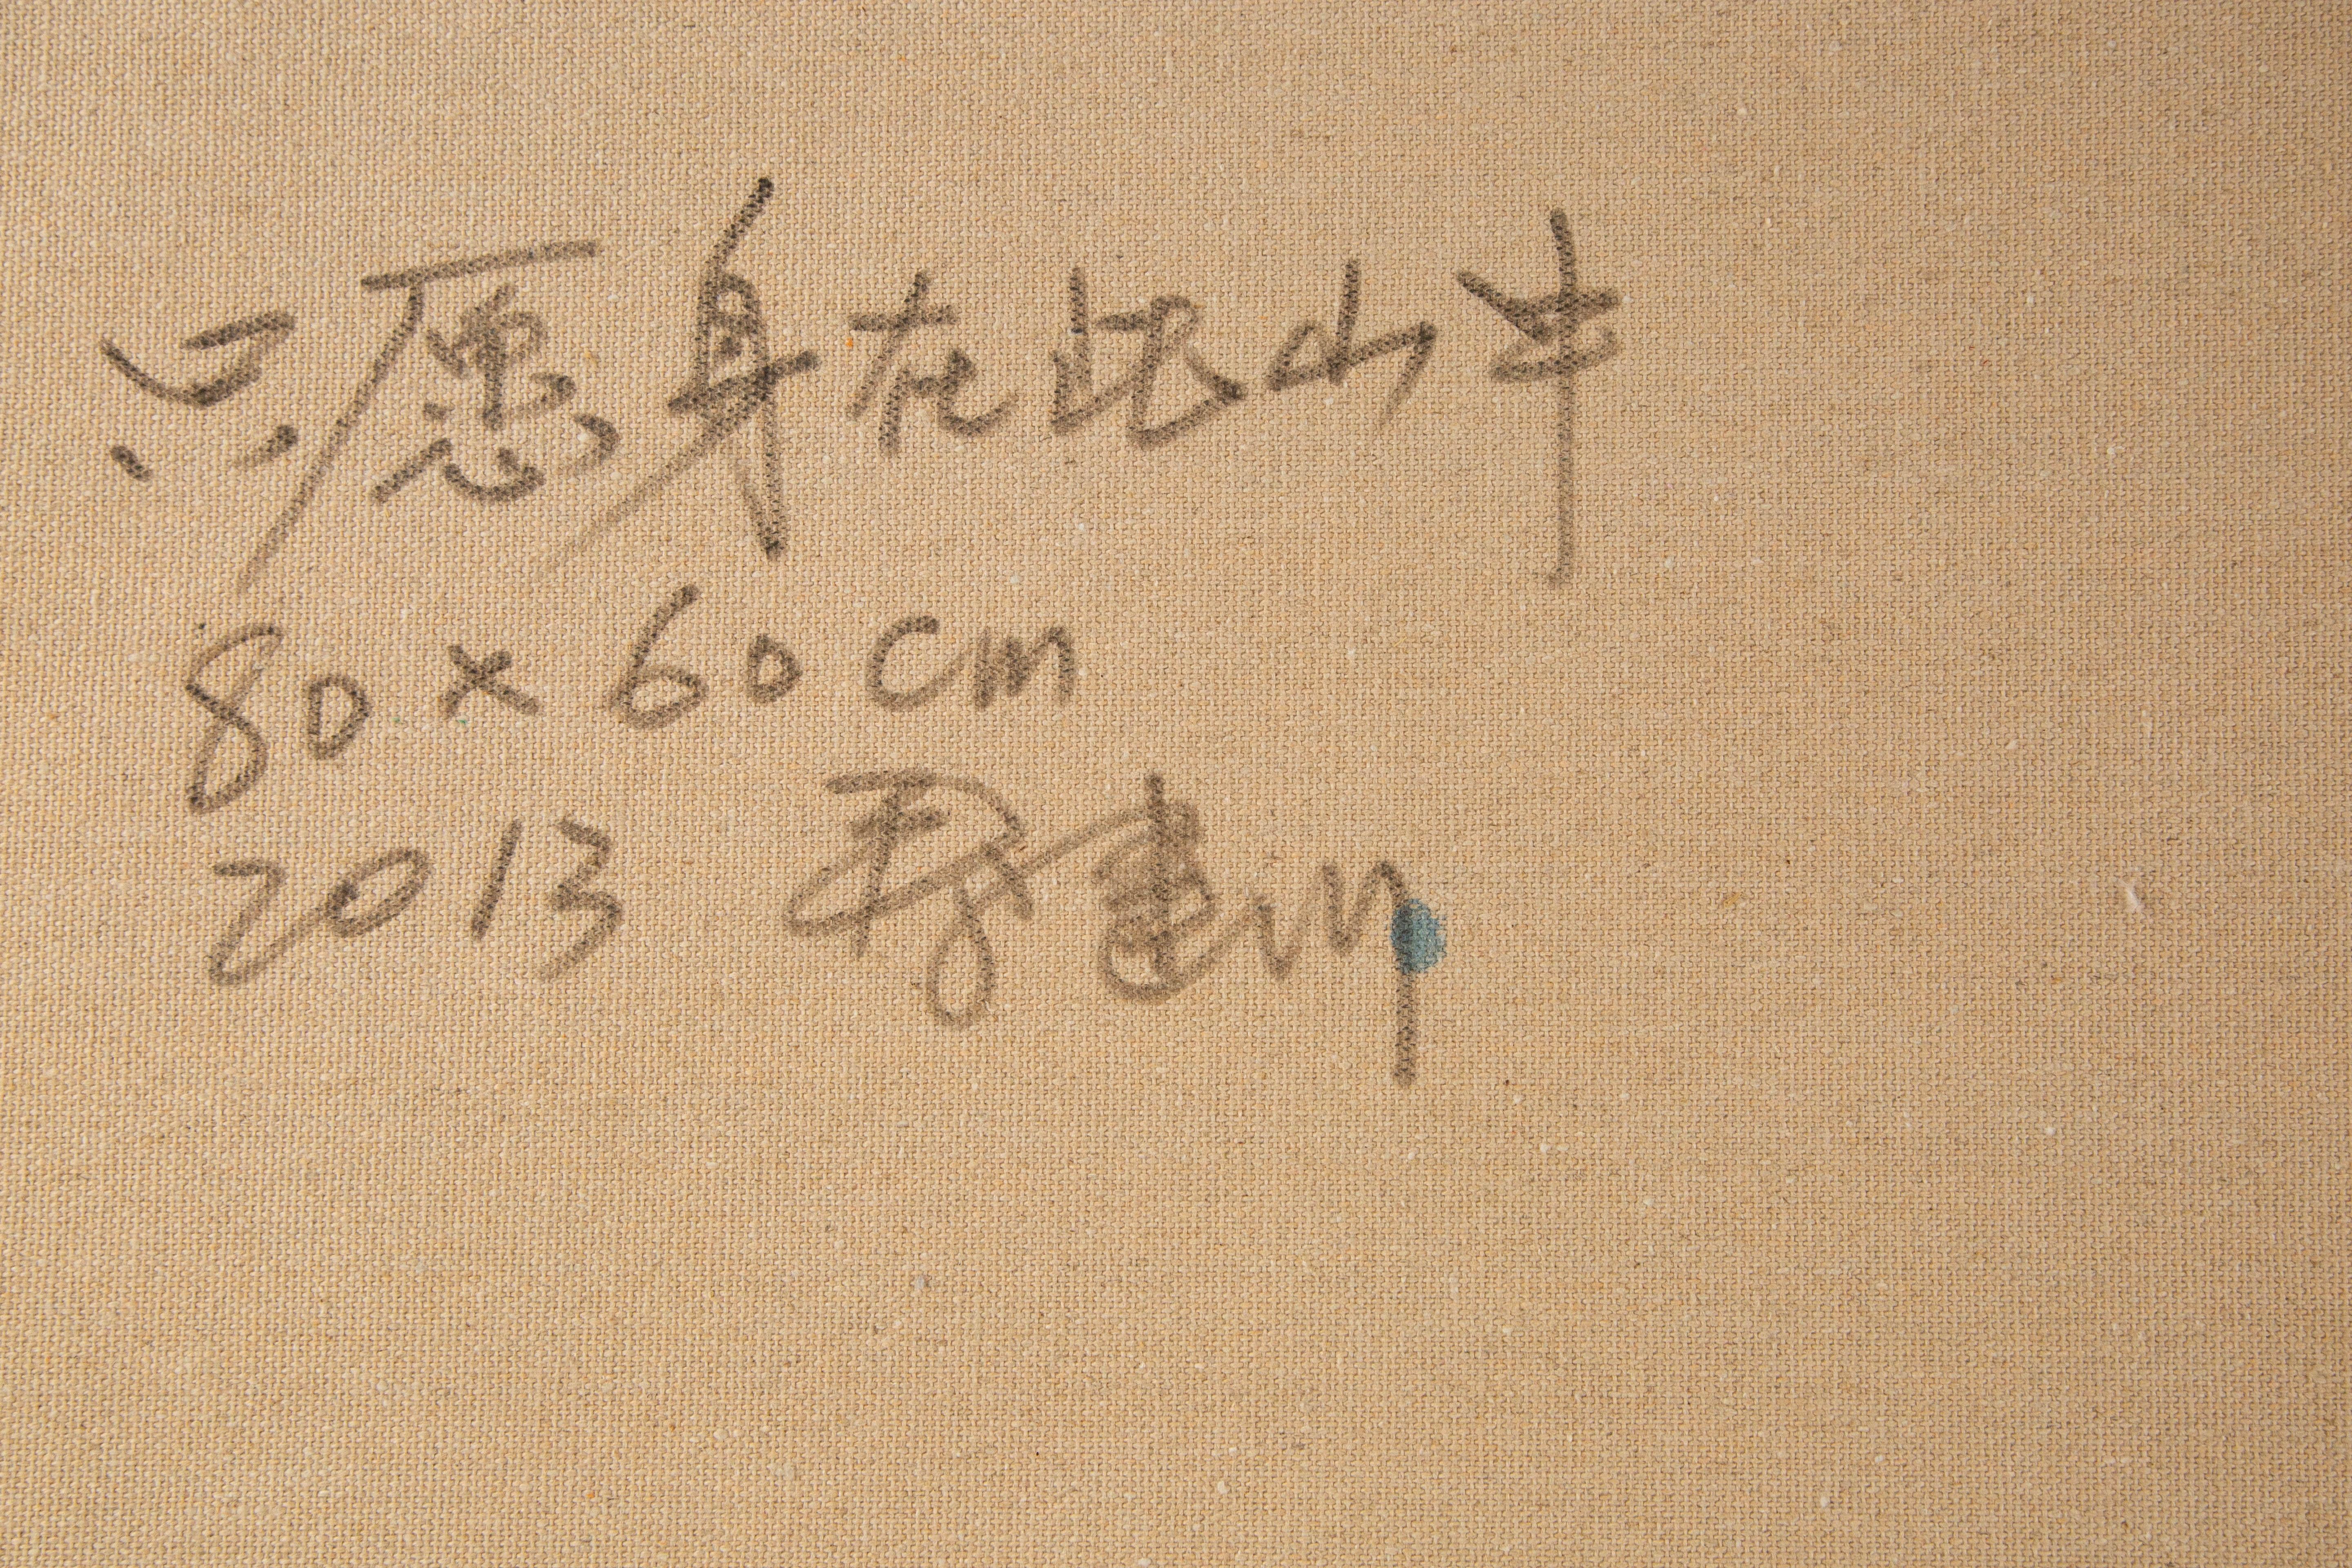 只愿身在此山中
80×60cm
2013